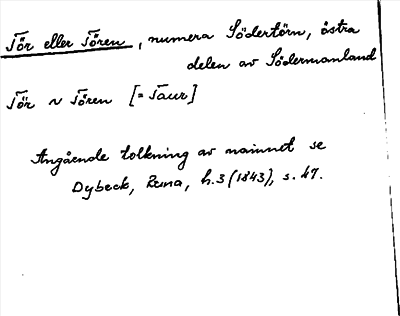 Tör eller Tören, numera Södertörn, östra
delen av Södermanland
Tör ~ Tören [= Taur]
Angående tolkning av namnet se
Dybeck, Runa, h. 3 (1843), s. 47.